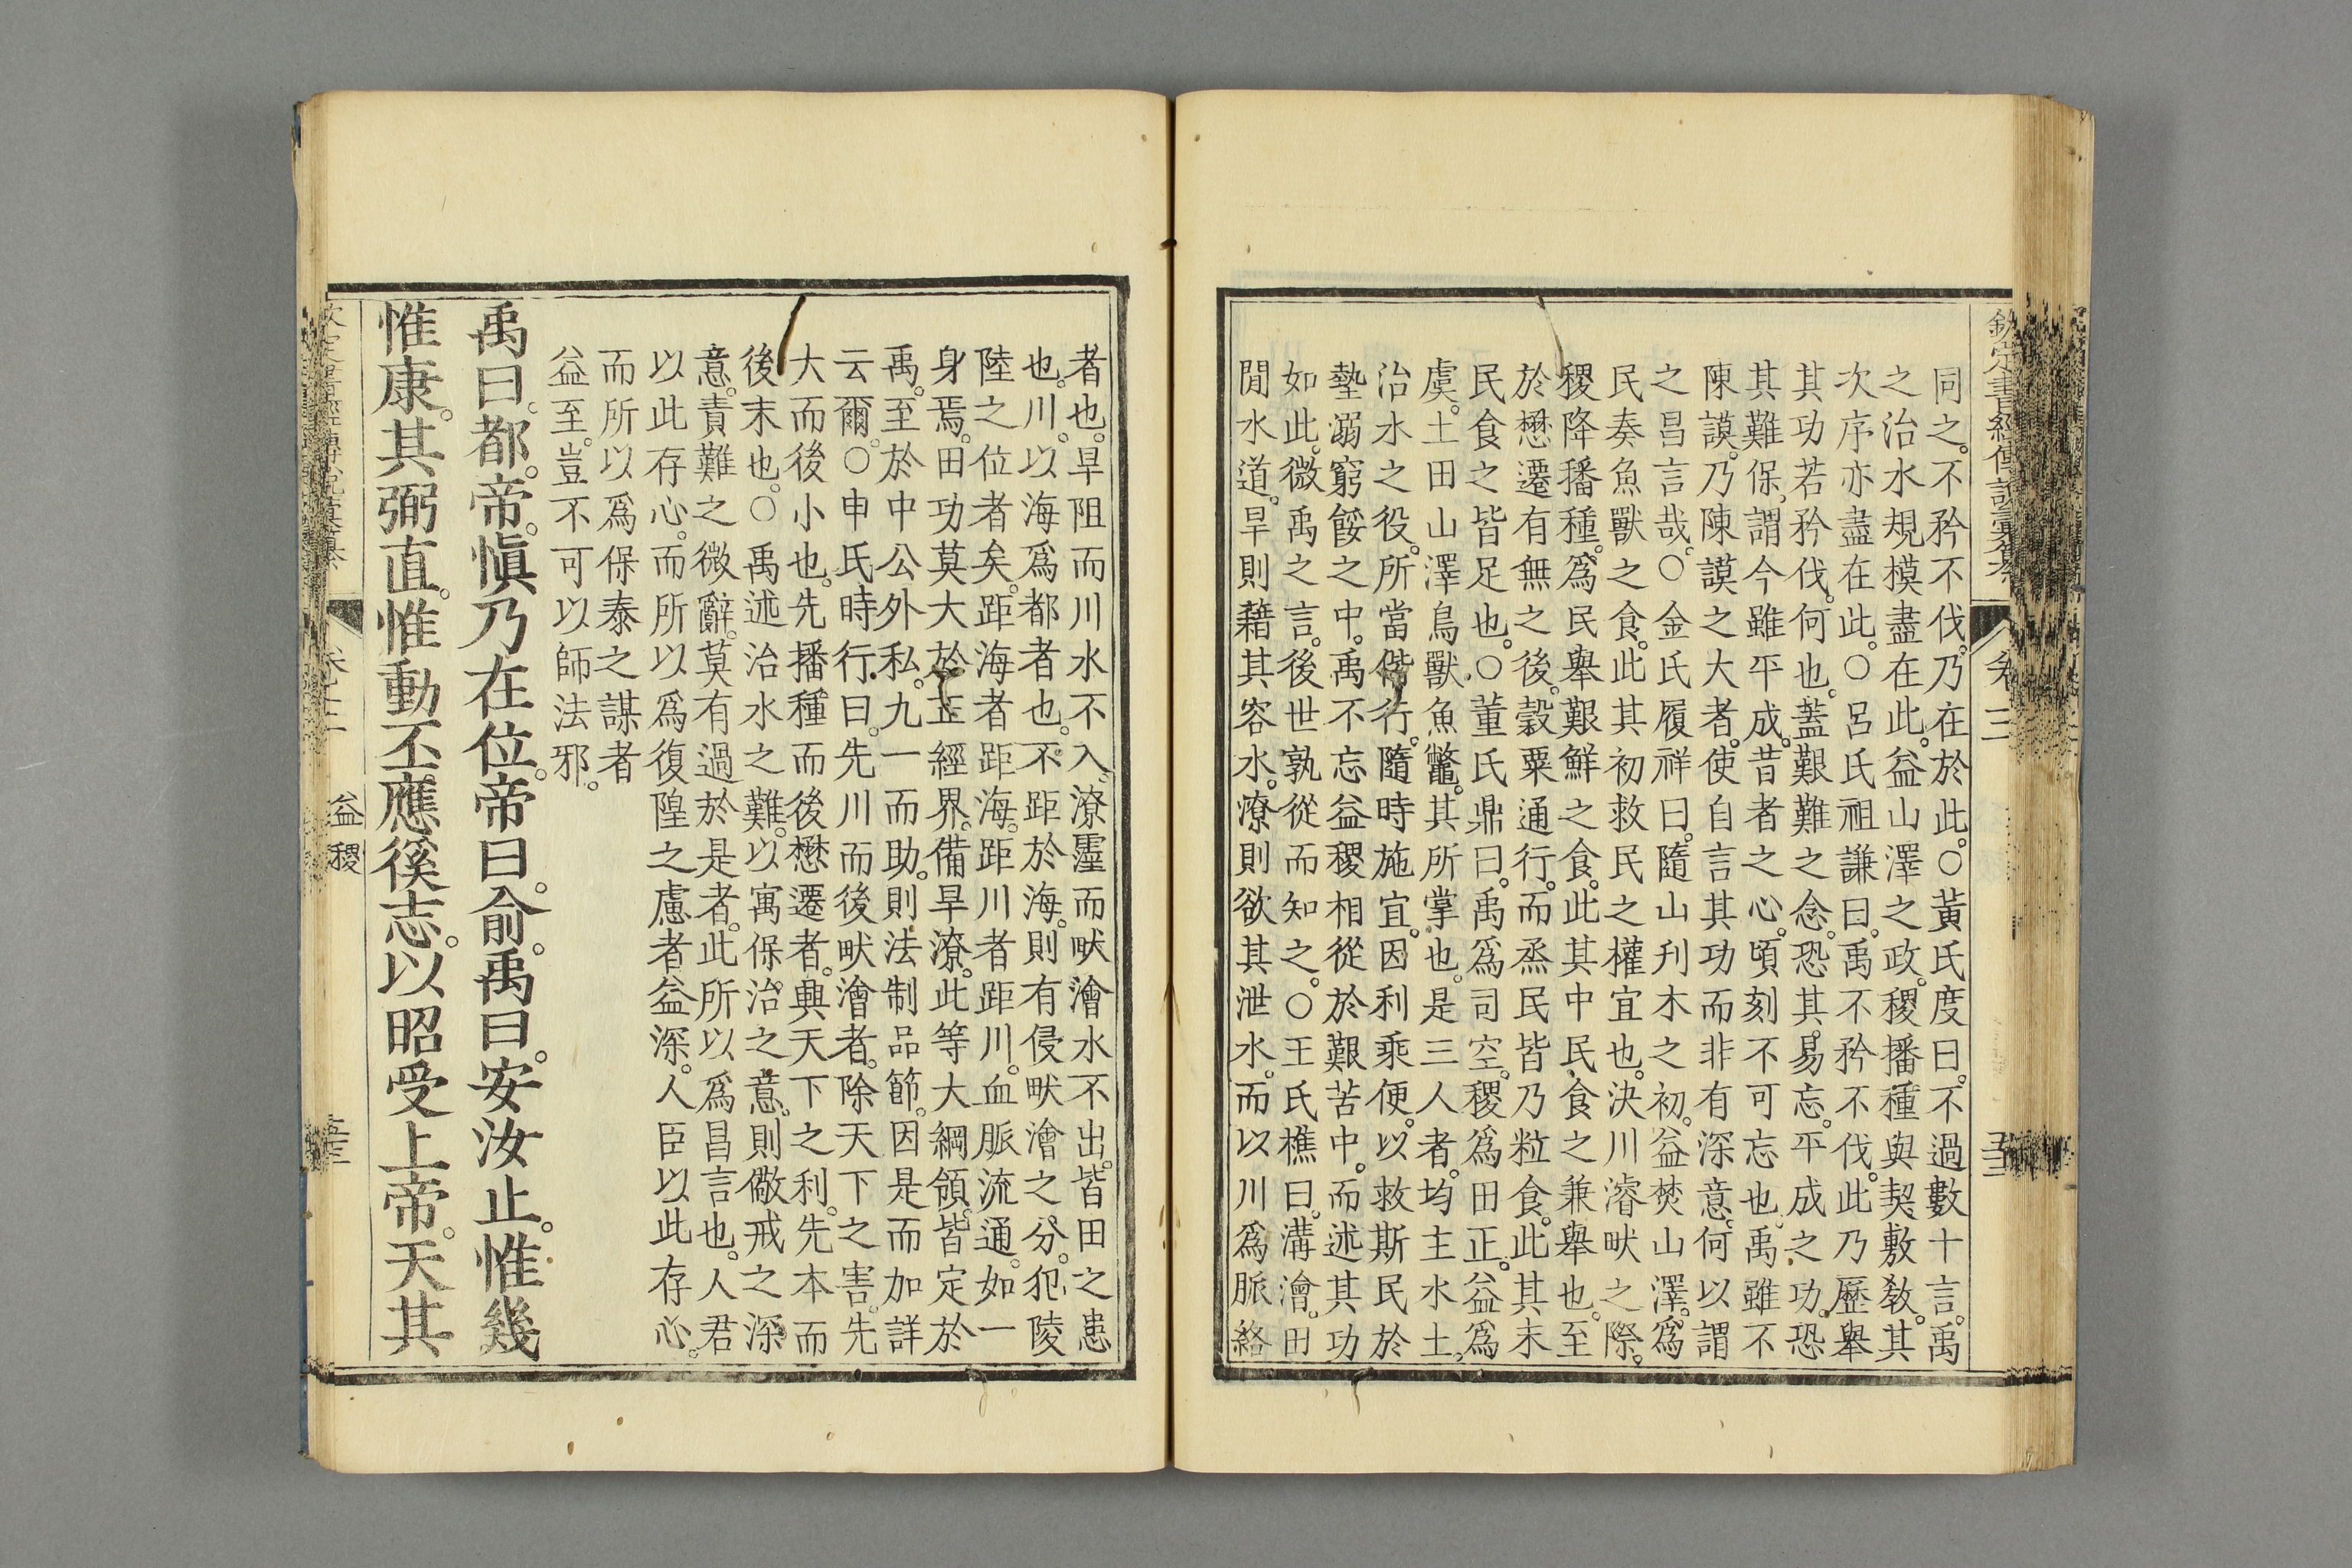 同之。不矜不伐。乃在於此。○黃氏度曰。不過數十言。禹
之治水規模盡在此。益山澤之政。稷播種與契敷敎。其
次序亦盡在此。○呂氏祖謙曰。禹不矜不伐。此乃歷舉
其功若矜伐。何也。蓋艱難之念。恐其易忘。平成之功。恐
其難保。謂今雖平成。昔者之心。頃刻不可忘也。禹雖不
陳謨。乃陳謨之大者。使自言其功而非有深意。何以謂
之昌言哉。○金氏履祥曰。隨山刋木之初。益焚山澤。爲
民奏魚獸之食。此其初救民之權宜也。決川濬畎之際。
稷降播種。爲民舉艱鮮之食。此其中民食之兼舉也。至
於懋遷有無之後。穀粟通行。而烝民皆乃粒食。此其末
民食之皆足也。○董氏鼎曰。禹爲司空。稷爲田正。益爲
虞。土田山澤鳥獸魚鼈。其所掌也。是三人者。均主水土。
治水之役。所當偕行。隨時施宜。因利乘便。以救斯民於
墊溺窮餒之中。禹不忘益稷相從於艱苦中。而述其功
如此。微禹之言。後世孰從而知之。○王氏樵曰。溝澮。田
閒水道。旱則藉其容水。潦則欲其泄水。而以川爲脈絡
者也。旱阻而川水不入。潦壅而畎澮水不出。皆田之患
也。川。以海爲都者也。不距於海。則有侵畎澮之分。犯陵
陸之位者矣。距海者距海。距川者距川。血脈流通。如一
身焉。田功莫大於正經界。備旱潦。此等大綱領。皆定於
禹。至於中公外私。九一而助。則法制品節。因是而加詳
云爾。○申氏時行曰。先川而後畎澮者。除天下之害。先
大而後小也。先播種而後懋遷者。興天下之利。先本而
後末也。○禹述治水之難。以寓保治之意。則儆戒之深
意。責難之微辭。莫有過於是者。此所以爲昌言也。人君
以此存心。而所以爲復隍之慮者益深。人臣以此存心。
而所以爲保泰之謀者
益至。豈不可以師法邪。
禹曰。都。帝。愼乃在位。帝曰。俞。禹曰。安汝止。惟幾
惟康。其弼直。惟動丕應徯志。以昭受上帝。天其
益稷